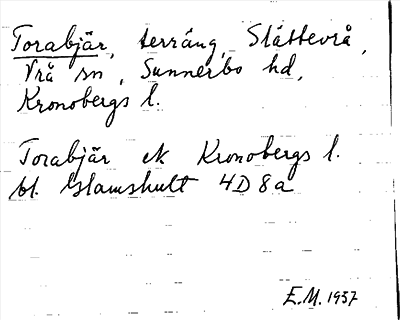 Torabjär, terräng, Slättevrå,
Vrå sn, Sunnerbo hd,
Kronobergs l.
Torabjär ek Kronobergs l.
bl. Glamshult 4D 8a
E.M. 1957